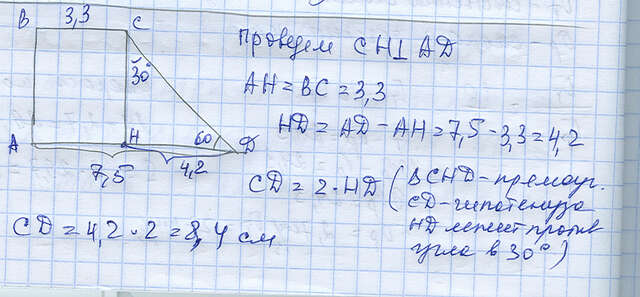 B 3,3 C
30°
A H 60 D
7,5 4,2
проведем CH⊥AD
AH = BC = 3,3
HD = AD - AH = 7,5 - 3,3 = 4,2
CD = 2 · HD (ВCHD - прямоуг.
CD - гипотенуза
HD лежит против
угла в 30°)
CD = 4,2 · 2 = 8,4 см